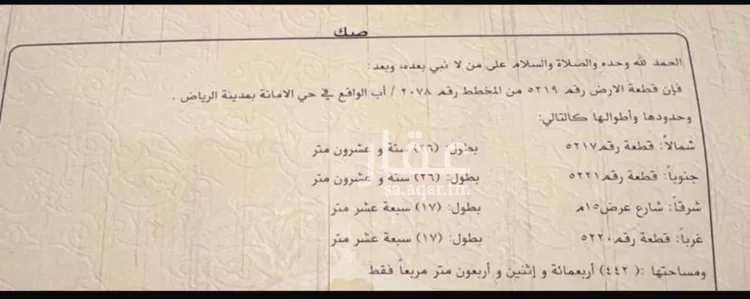 صك
الحمد لله وحده والصلاة والسلام على من لا نبي بعده، وبعد:
فإن قطعة الارض رقم ٥٢١٩ من المخطط رقم ٢٠٧٨ / أب الواقع في حي الامانة بمدينة الرياض .
وحدودها وأطوالها كالتالي:
شمالاً: قطعة رقم ٥٢١٧ بطول: (٢٦) ستة و عشرون متر
جنوباً: قطعة رقم ٥٢٢١ بطول: (٢٦) ستة و عشرون متر
شرقاً: شارع عرض ١٥م بطول: (١٧) سبعة عشر متر
غرباً: قطعة رقم ٥٢٢٠ بطول: (١٧) سبعة عشر متر
ومساحتها : (٤٤٢) أربعمائة و إثنين و أربعون متر مربعاً فقط
عقار
sa.aqar.fm